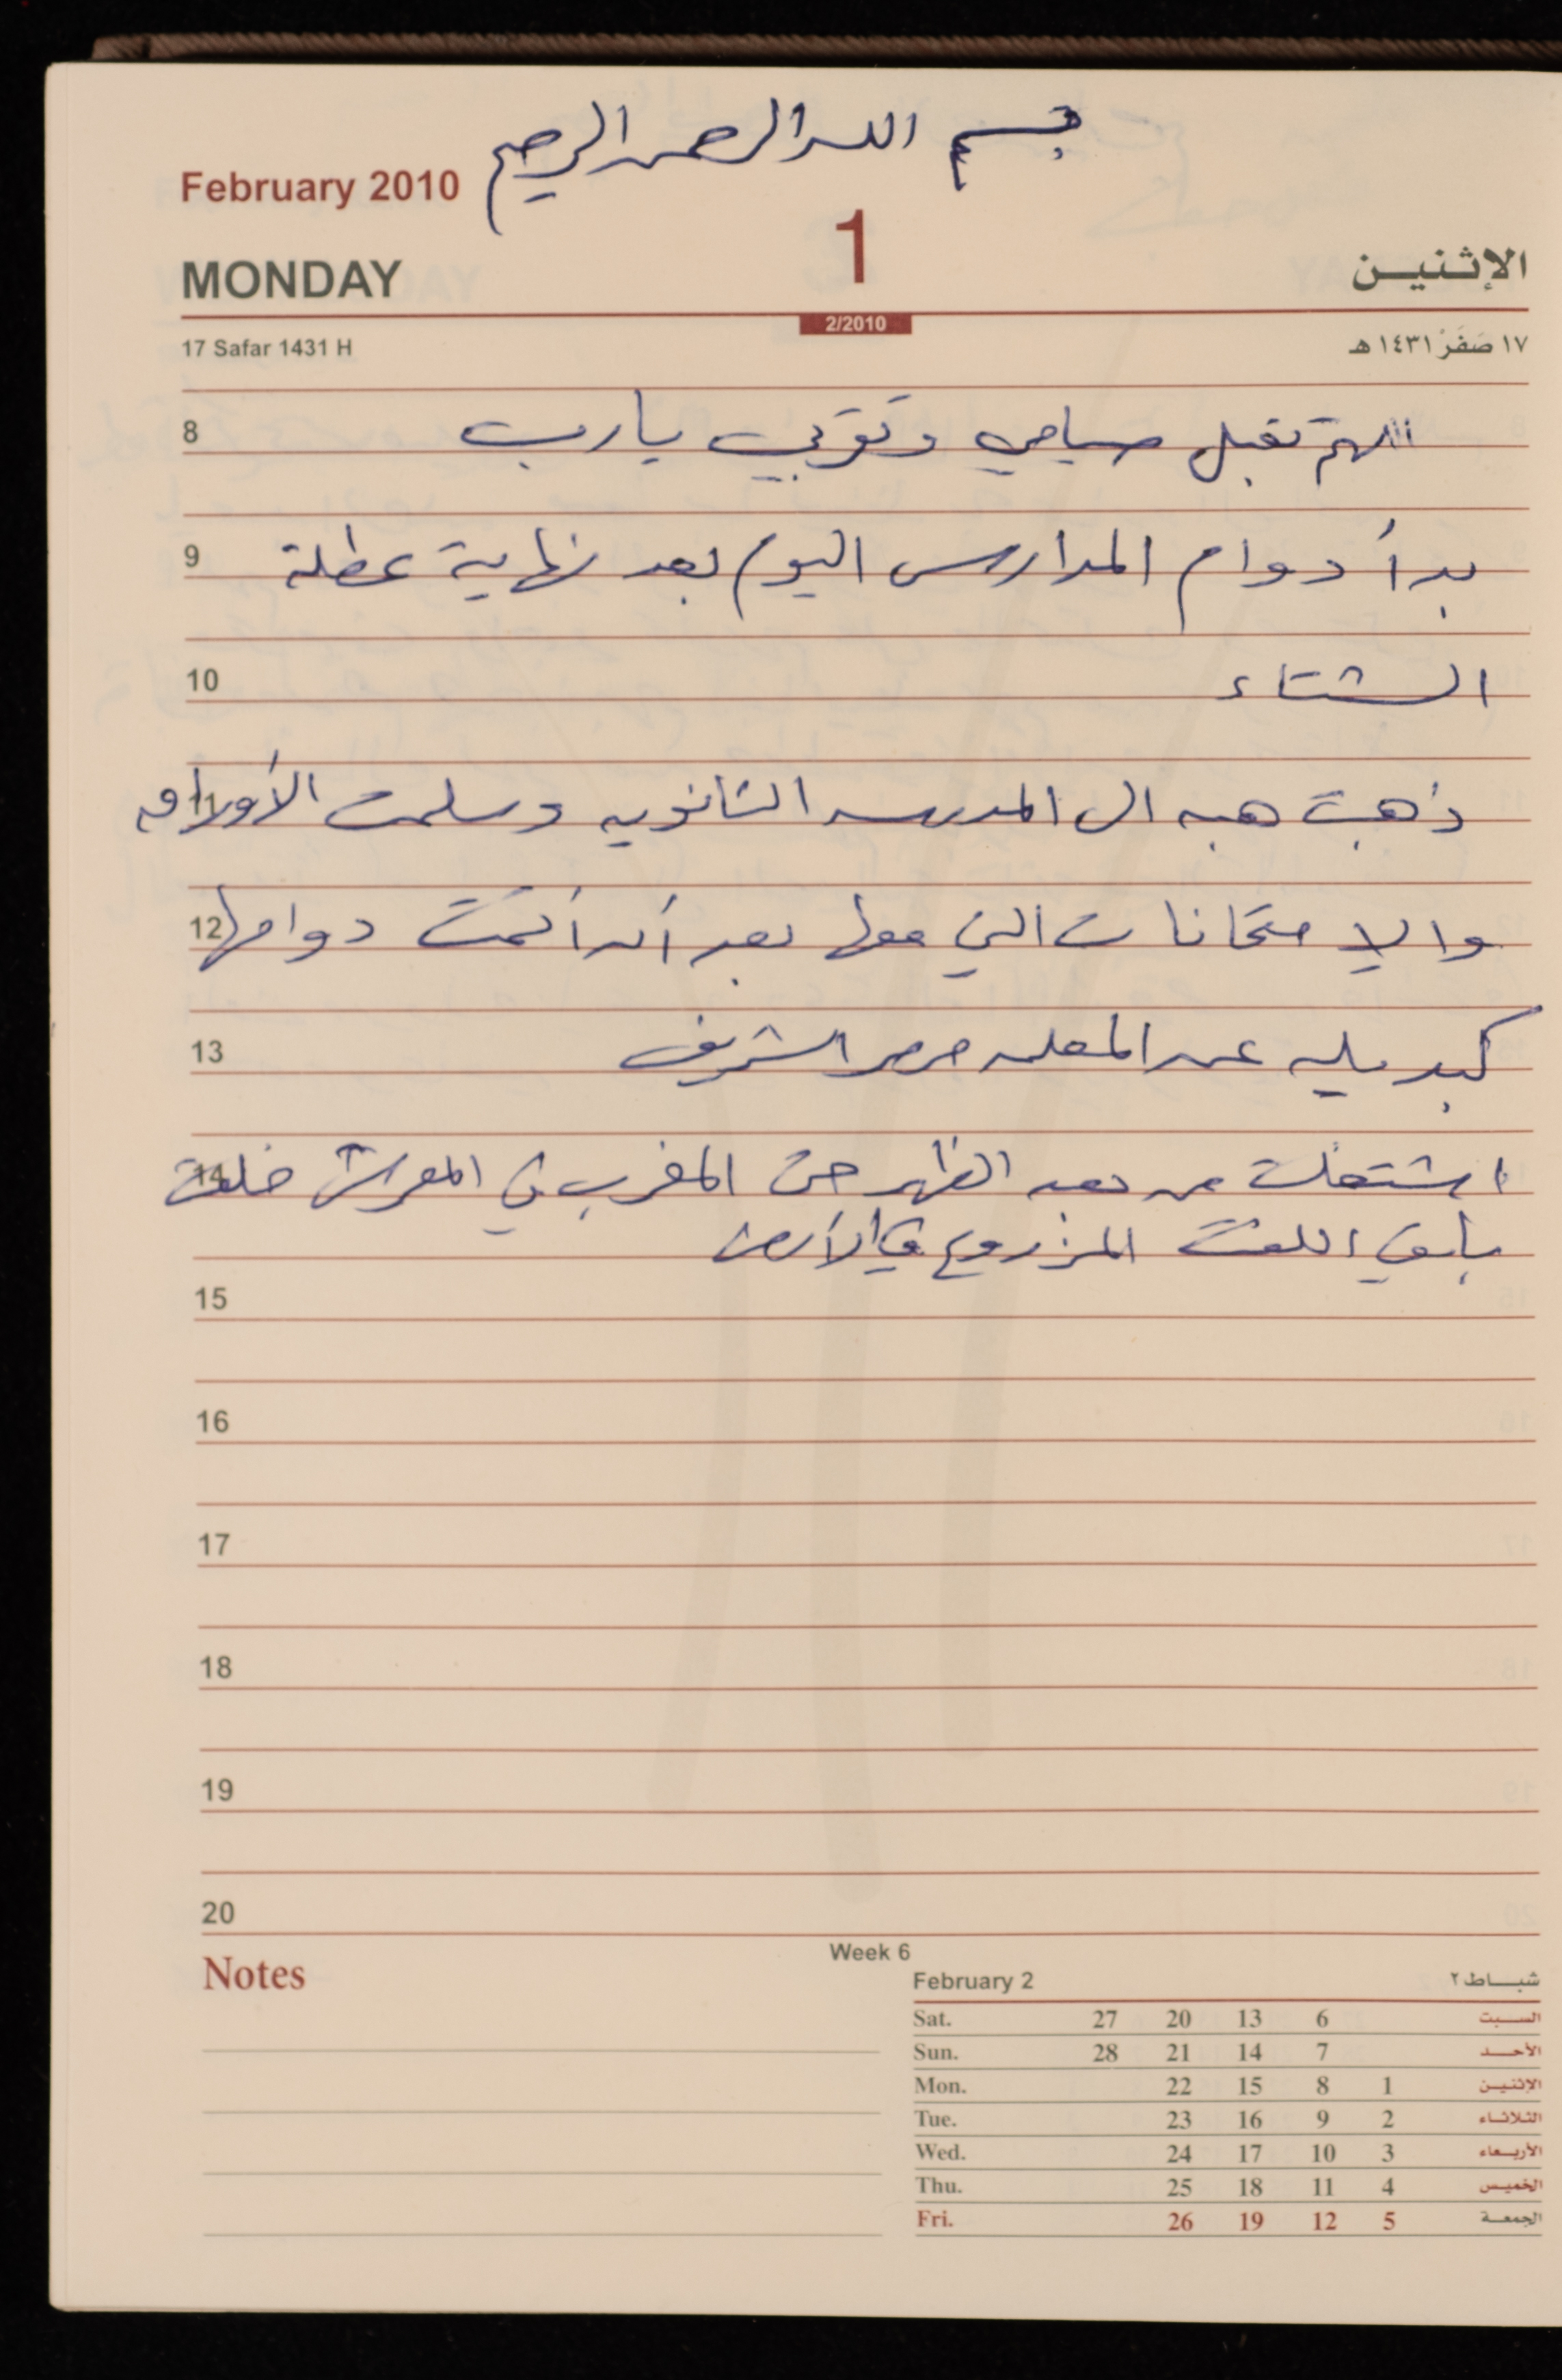 بسم الله الرحمن الرحيم
February 2010
1
MONDAY
الإثنين
2/2010
17 Safar 1431 H
١٧ صَفَرْ ١٤٣١ هـ
8 اللهم تقبل صيامي وتقربي يارب
9 بدأ دوام المدارس اليوم بعد نهاية عطلة
10 الشتاء
11 ذهبت هبه الى المدرسه الثانويه وسلمت الأوراق
12 والإمتحانات التي معها بعد أن أتمت دوامها
13 كبديله عن المعلمه مرام الشريف
14 اشتغلت من بعد الظهر حتى المغرب في المعرش خلعت
باقي اللفت المزروع في الأرض
15
16
17
18
19
20
Notes
Week 6
February 2 شباط ٢
Sat. 27 20 13 6 السبت
Sun. 28 21 14 7 الأحد
Mon. 22 15 8 1 الإثنين
Tue. 23 16 9 2 الثلاثاء
Wed. 24 17 10 3 الأربعاء
Thu. 25 18 11 4 الخميس
Fri. 26 19 12 5 الجمعة